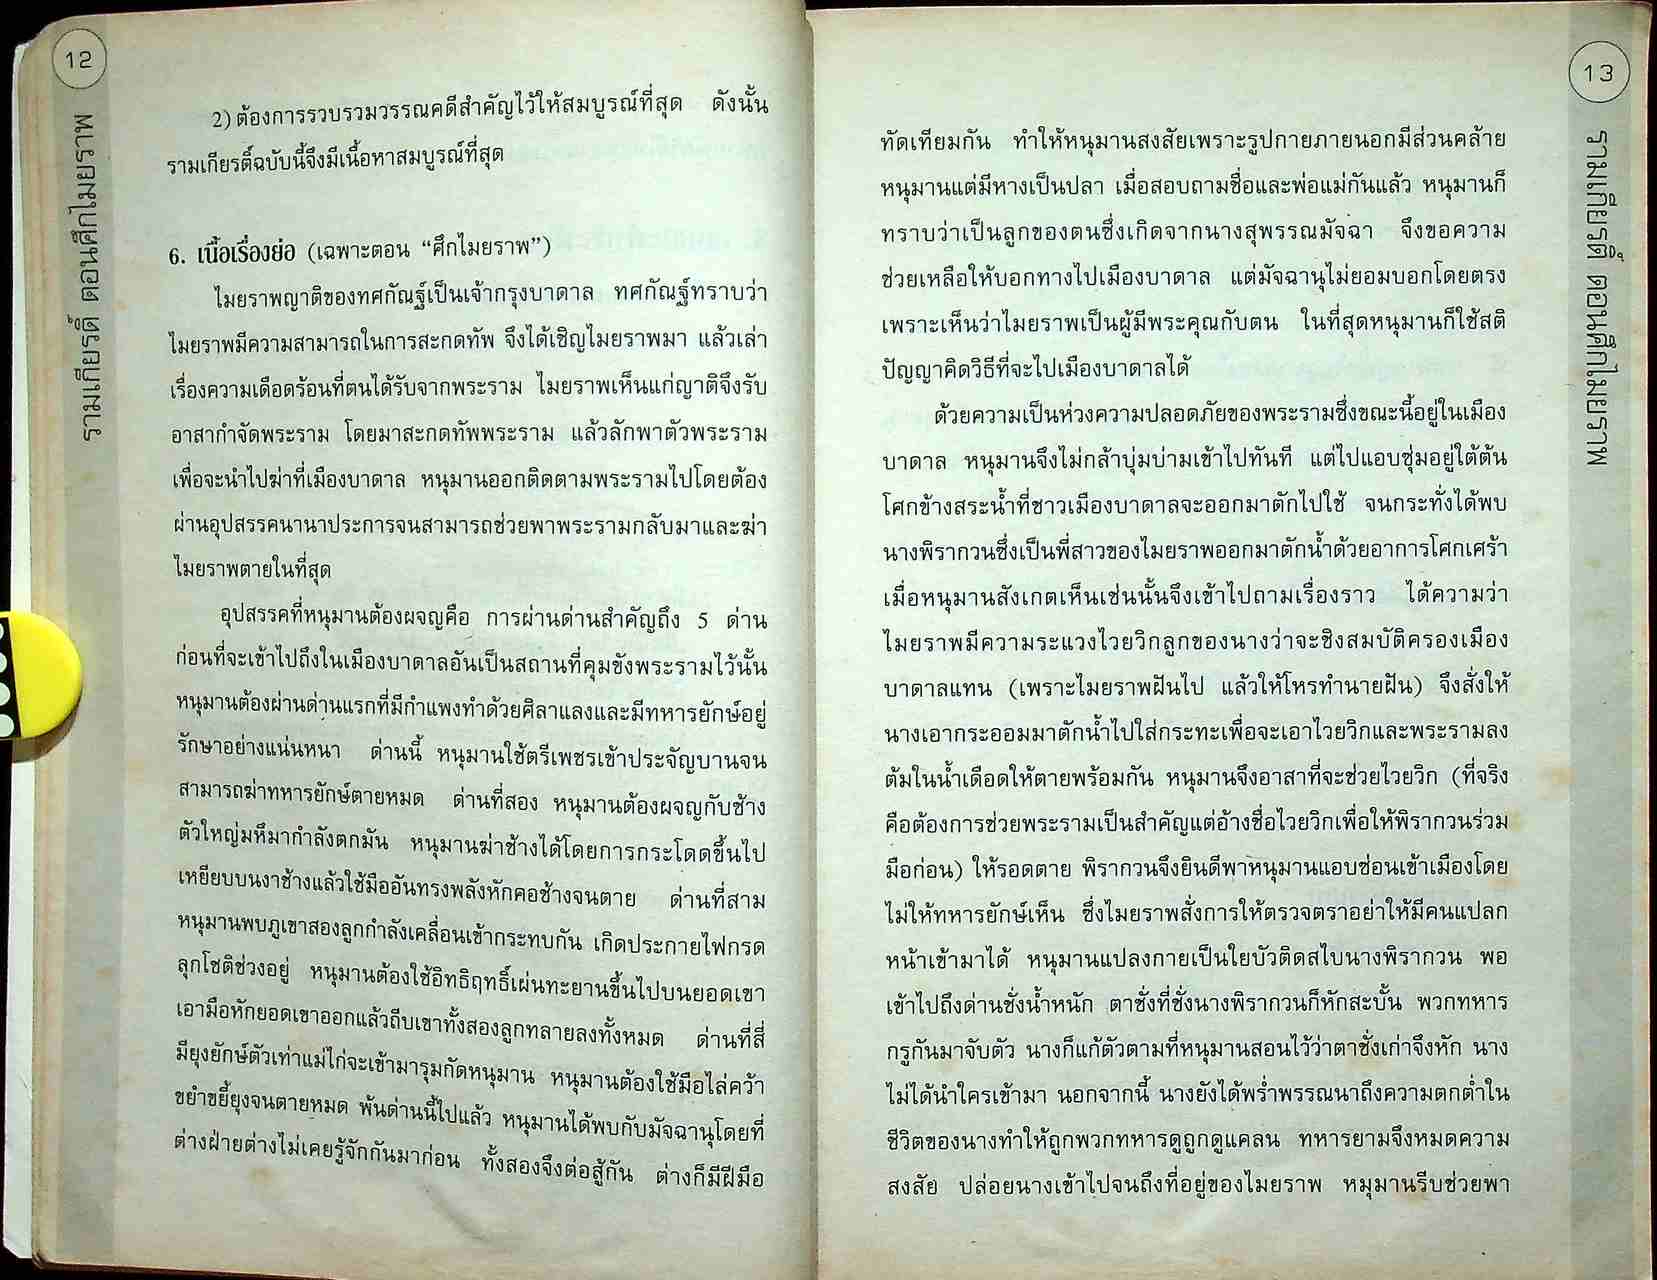 12
รามเกียรติ์ ตอนศึกไมยราพ
2) ต้องการรวบรวมวรรณคดีสำคัญไว้ให้สมบูรณ์ที่สุด ดังนั้น
รามเกียรติ์ฉบับนี้จึงมีเนื้อหาสมบูรณ์ที่สุด
6. เนื้อเรื่องย่อ (เฉพาะตอน “ศึกไมยราพ”)
ไมยราพญาติของทศกัณฐ์เป็นเจ้ากรุงบาดาล ทศกัณฐ์ทราบว่า
ไมยราพมีความสามารถในการสะกดทัพ จึงได้เชิญไมยราพมา แล้วเล่า
เรื่องความเดือดร้อนที่ตนได้รับจากพระราม ไมยราพเห็นแก่ญาติจึงรับ
อาสากำจัดพระราม โดยมาสะกดทัพพระราม แล้วลักพาตัวพระราม
เพื่อจะนำไปฆ่าที่เมืองบาดาล หนุมานออกติดตามพระรามไปโดยต้อง
ผ่านอุปสรรคนานาประการจนสามารถช่วยพาพระรามกลับมาและฆ่า
ไมยราพตายในที่สุด
อุปสรรคที่หนุมานต้องผจญคือ การผ่านด่านสำคัญถึง 5 ด่าน
ก่อนที่จะเข้าไปถึงในเมืองบาดาลอันเป็นสถานที่คุมขังพระรามไว้นั้น
หนุมานต้องผ่านด่านแรกที่มีกำแพงทำด้วยศิลาแลงและมีทหารยักษ์อยู่
รักษาอย่างแน่นหนา ด่านนี้ หนุมานใช้ตรีเพชรเข้าประจัญบานจน
สามารถฆ่าทหารยักษ์ตายหมด ด่านที่สอง หนุมานต้องผจญกับช้าง
ตัวใหญ่มหึมากำลังตกมัน หนุมานฆ่าช้างได้โดยการกระโดดขึ้นไป
เหยียบบนงาช้างแล้วใช้มืออันทรงพลังหักคอช้างจนตาย ด่านที่สาม
หนุมานพบภูเขาสองลูกกำลังเคลื่อนเข้ากระทบกัน เกิดประกายไฟกรด
ลุกโชติช่วงอยู่ หนุมานต้องใช้อิทธิฤทธิ์เผ่นทะยานขึ้นไปบนยอดเขา
เอามือหักยอดเขาออกแล้วถีบเขาทั้งสองลูกทลายลงทั้งหมด ด่านที่สี่
มียุงยักษ์ตัวเท่าแม่ไก่จะเข้ามารุมกัดหนุมาน หนุมานต้องใช้มือไล่คว้า
ขยำขยี้ยุงจนตายหมด พ้นด่านนี้ไปแล้ว หนุมานได้พบกับมัจฉานุโดยที่
ต่างฝ่ายต่างไม่เคยรู้จักกันมาก่อน ทั้งสองจึงต่อสู้กัน ต่างก็มีฝีมือ
13
รามเกียรติ์ ตอนศึกไมยราพ
ทัดเทียมกัน ทำให้หนุมานสงสัยเพราะรูปกายภายนอกมีส่วนคล้าย
หนุมานแต่มีหางเป็นปลา เมื่อสอบถามชื่อและพ่อแม่กันแล้ว หนุมานก็
ทราบว่าเป็นลูกของตนซึ่งเกิดจากนางสุพรรณมัจฉา จึงขอความ
ช่วยเหลือให้บอกทางไปเมืองบาดาล แต่มัจฉานุไม่ยอมบอกโดยตรง
เพราะเห็นว่าไมยราพเป็นผู้มีพระคุณกับตน ในที่สุดหนุมานก็ใช้สติ
ปัญญาคิดวิธีที่จะไปเมืองบาดาลได้
ด้วยความเป็นห่วงความปลอดภัยของพระรามซึ่งขณะนี้อยู่ในเมือง
บาดาล หนุมานจึงไม่กล้าบุ่มบ่ามเข้าไปทันที แต่ไปแอบซุ่มอยู่ใต้ต้น
โศกข้างสระน้ำที่ชาวเมืองบาดาลจะออกมาตักไปใช้ จนกระทั่งได้พบ
นางพิรากวนซึ่งเป็นพี่สาวของไมยราพออกมาตักน้ำด้วยอาการโศกเศร้า
เมื่อหนุมานสังเกตเห็นเช่นนั้นจึงเข้าไปถามเรื่องราว ได้ความว่า
ไมยราพมีความระแวงไวยวิกลูกของนางว่าจะชิงสมบัติครองเมือง
บาดาลแทน (เพราะไมยราพฝันไป แล้วให้โหรทำนายฝัน) จึงสั่งให้
นางเอากระออมมาตักน้ำไปใส่กระทะเพื่อจะเอาไวยวิกและพระรามลง
ต้มในน้ำเดือดให้ตายพร้อมกัน หนุมานจึงอาสาที่จะช่วยไวยวิก (ที่จริง
คือต้องการช่วยพระรามเป็นสำคัญแต่อ้างชื่อไวยวิกเพื่อให้พิรากวนร่วม
มือก่อน) ให้รอดตาย พิรากวนจึงยินดีพาหนุมานแอบซ่อนเข้าเมืองโดย
ไม่ให้ทหารยักษ์เห็น ซึ่งไมยราพสั่งการให้ตรวจตราอย่าให้มีคนแปลก
หน้าเข้ามาได้ หนุมานแปลงกายเป็นใยบัวติดสไบนางพิรากวน พอ
เข้าไปถึงด่านชั่งน้ำหนัก ตาชั่งที่ชั่งนางพิรากวนก็หักสะบั้น พวกทหาร
กรูกันมาจับตัว นางก็แก้ตัวตามที่หนุมานสอนไว้ว่าตาชั่งเก่าจึงหัก นาง
ไม่ได้นำใครเข้ามา นอกจากนี้ นางยังได้พร่ำพรรณนาถึงความตกต่ำใน
ชีวิตของนางทำให้ถูกพวกทหารดูถูกดูแคลน ทหารยามจึงหมดความ
สงสัย ปล่อยนางเข้าไปจนถึงที่อยู่ของไมยราพ หมุมานรีบช่วยพา